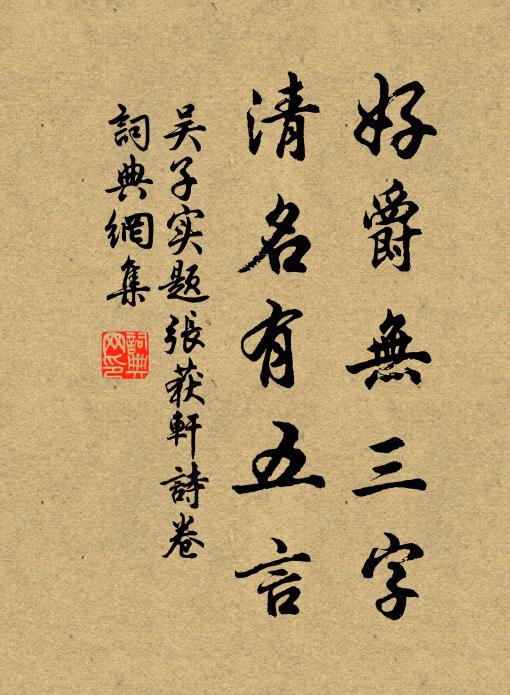 好爵無三字
清名有五言
吴子实题張荻軒詩卷
詞典網集
詞典
网印